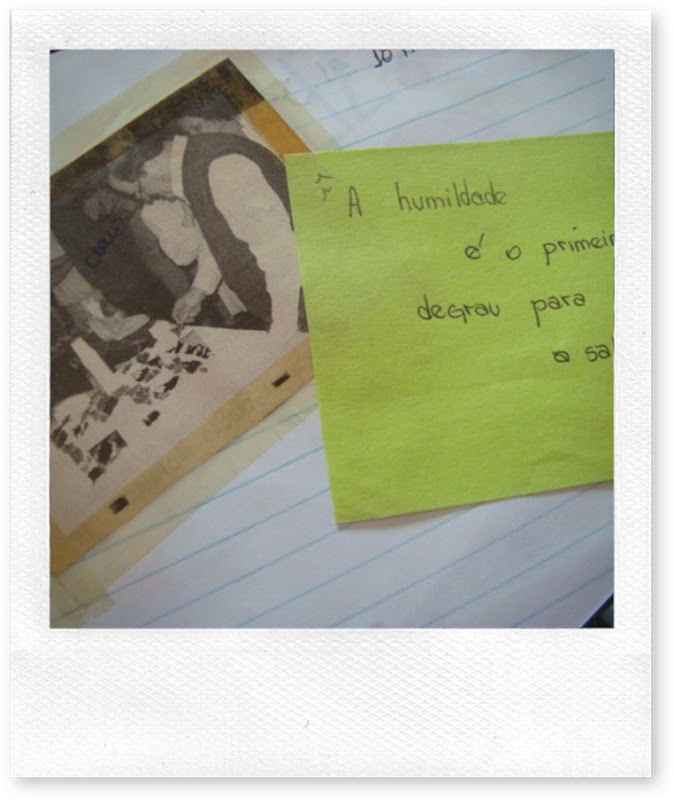 A humildade
é o primeir
degrau para
a sa